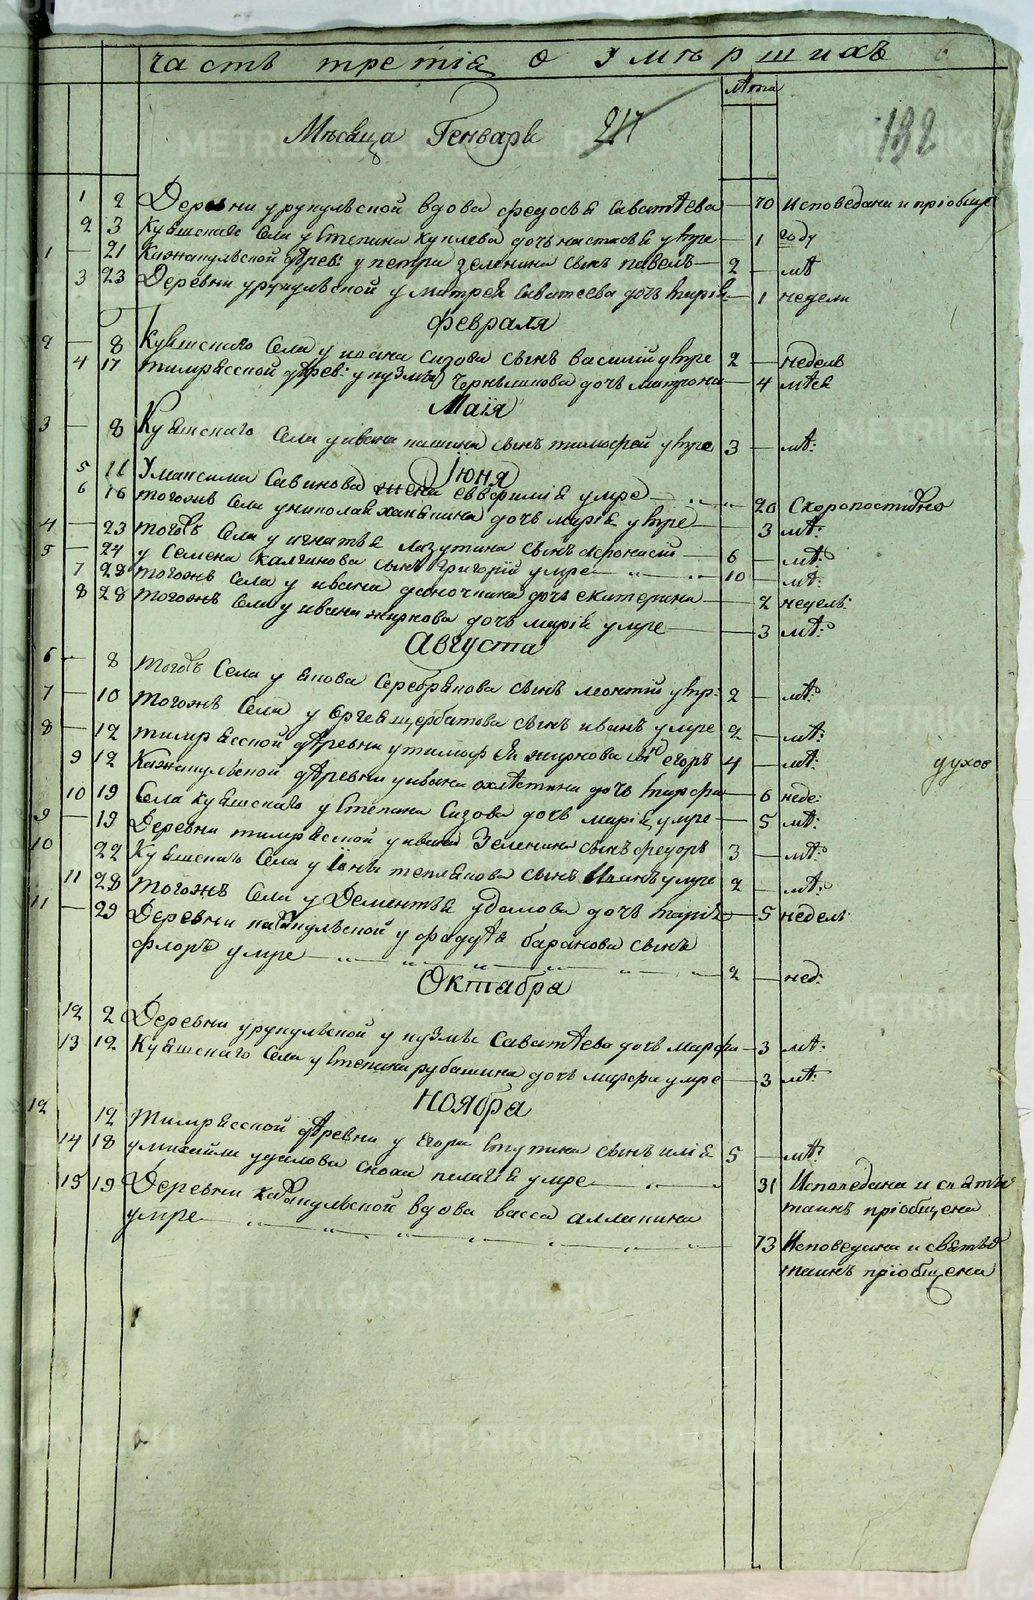 часть третія о умершихъ
лѣта
Мѣсяца Генваря 217 182
1 2 Деревни урукульской вдова федосья саватѣева — 70 Исповедана и пріобще
2 3 Куяшскаго Села у степана куклева дочь настасья умре — 1 году
1 — 21 Карапульской дѣрев: у петра зеленина сынъ павелъ — 2 — лѣ
3 23 Деревни урукульской у матвея саватеева дочь марія — 1 недели
февраля
2 — 8 Куяшскаго Села у иоана сизова сынъ василій умре 2 — недель
4 17 тимряссной дѣрев: у кузмы дочь матрона — 4 мѣся
Маія
3 — 8 Куяшскаго Села у ивана сынъ тимофей умре 3 — лѣ:
Іюня
5 11 У максима Савинова жена евфимія умре — 20 Скоропостижно
6 16 тогожъ Села у николая дочь марія умре — 3 лѣ:
4 — 23 тогожъ Села у игнатья лазутина сынъ афонасій — 6 — лѣ:
5 — 24 у Семена Калгинова сынъ григорій умре — 10 — лѣ:
7 28 тогожъ Села у ивана дочь екатерина — 2 недель:
8 28 тогожъ Села у ивана жиркова дочь марія умре — 3 лѣ:
Августа
6 — 8 тогожъ Села у якова Серебрякова сынъ леонтій умр: 2 — лѣ:
7 — 10 тогожъ Села у сергея щербатова сынъ иванъ умре 2 — лѣ:
8 — 12 тимряссной дѣревни у тимофея жиркова сынъ егоръ 4 — лѣ: духов
9 12 Карапульской дѣревни у ивана охлѣстина дочь марфа — 6 неде:
10 19 Села куяшскаго у степана Сизова дочь марія умре — 5 лѣ:
9 — 19 Деревни тимряссной у ивана Зеленина сынъ федоръ 3 — лѣ:
10 22 Куяшскаго Села у теплякова сынъ умре 2 — лѣ:
11 28 тогожъ Села у Дементья удалова дочь марія — 5 недель:
11 — 29 Деревни карапульской у фаддѣя баранова сынъ
флоръ умре — 2 — нед:
Октября
12 2 Деревни урукульской у кузмы Саватѣева дочь марфа — 3 лѣ:
13 12 Куяшскаго Села у степана рубашина дочь марфа умре — 3 лѣ:
Ноября
12 12 тимряссной дѣревни у Егора ступина сынъ илія 5 — лѣ:
14 18 у михайли удалова сноха пелагія умре — 31 Исповедана и святы
таинъ пріобщена
15 19 Деревни карапульской вдова васса аллапина
умре — 73 Исповедана и святы
таинъ пріобщена
METRIKI.GASO-URAL.RU